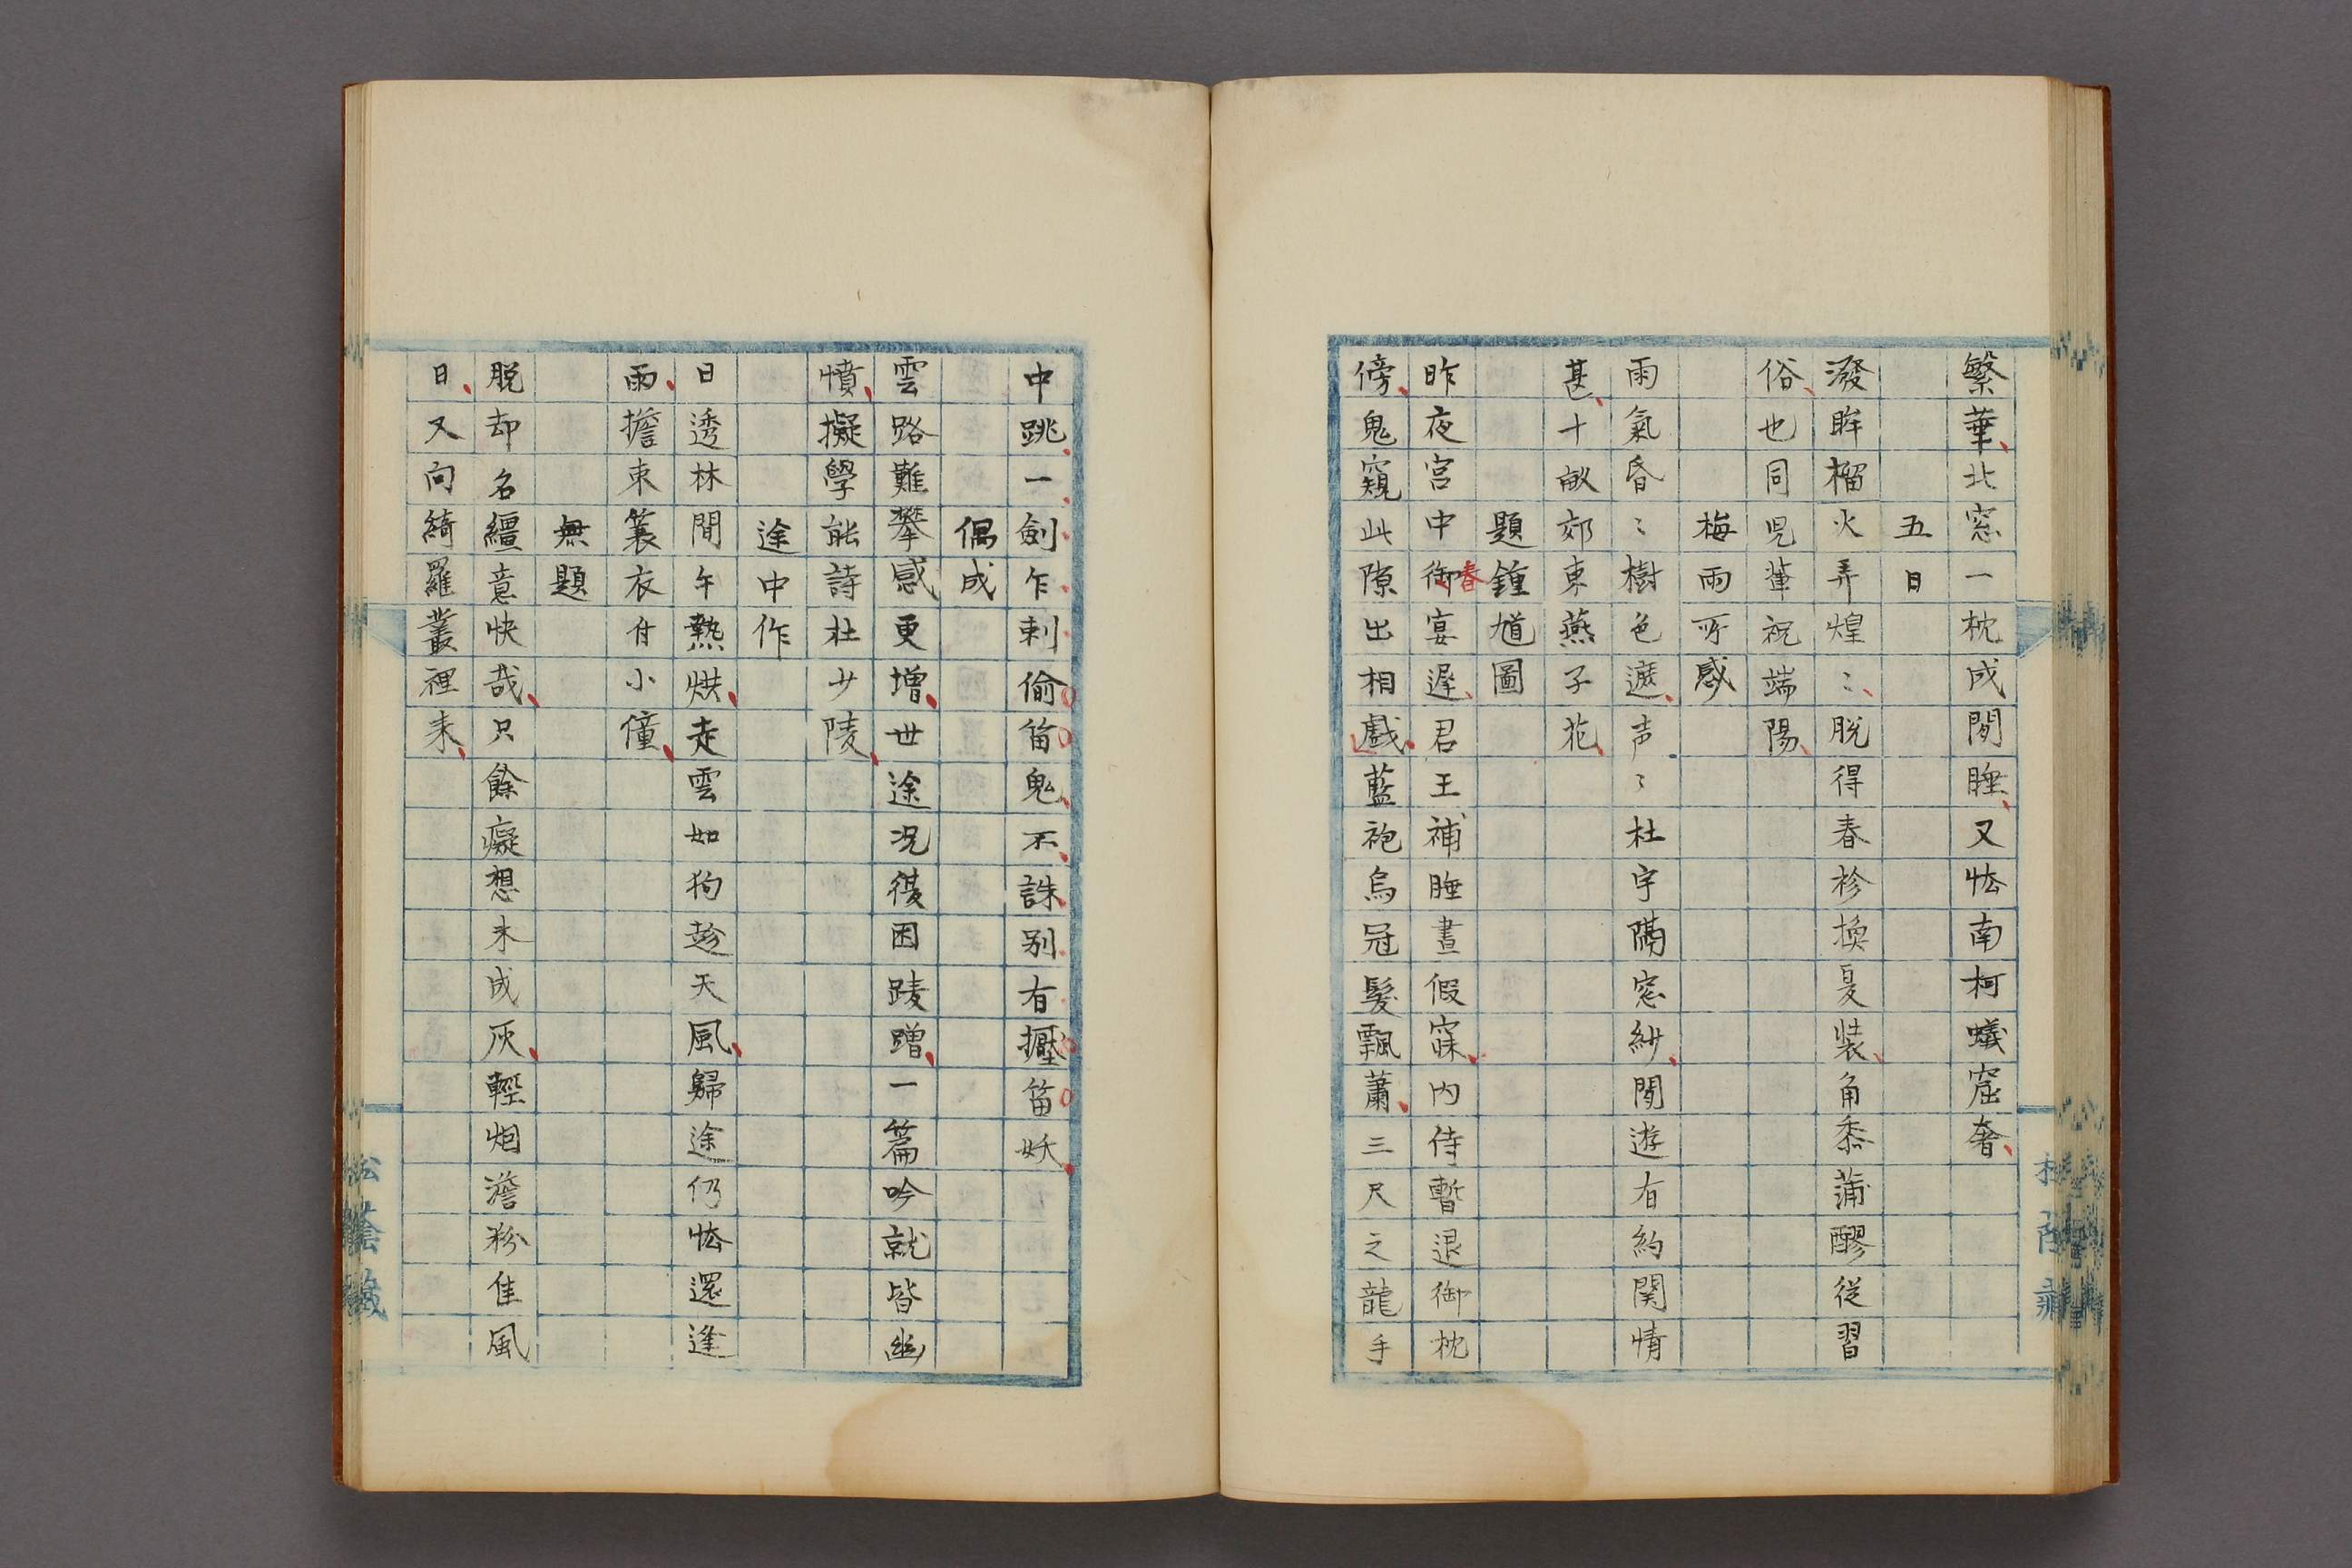 繁華北窓一枕成閒睡又恠南柯蟻窟奢
五日
潑眸榴火弄煌〻脱得春衫換夏装角黍蒲醪従習
俗也同児輩祝端陽
梅雨所感
雨氣昏〻樹色遮声〻杜宇隔窓紗閒遊有約関情
甚十畝郊東燕子花
題鍾馗圖
昨夜宮中御春宴遅君王補睡晝假寐内侍暫退御枕
傍鬼窺此隙出相戲藍袍烏冠髮飄蕭三尺之龍手
中跳一劍乍刺偷笛鬼不誅别有擫笛妖
偶成
雲路難攀感更増世途况復困踜蹭一篇吟就皆幽
憤擬學能詩杜少陵
途中作
日透林間午熱烘走雲如狗趂天風歸途仍恠還逢
雨擔束簑衣付小僮
無題
脱却名韁意快哉只餘癡想未成灰輕烟澹粉佳風
日又向綺羅叢裡来
松蔭蔵